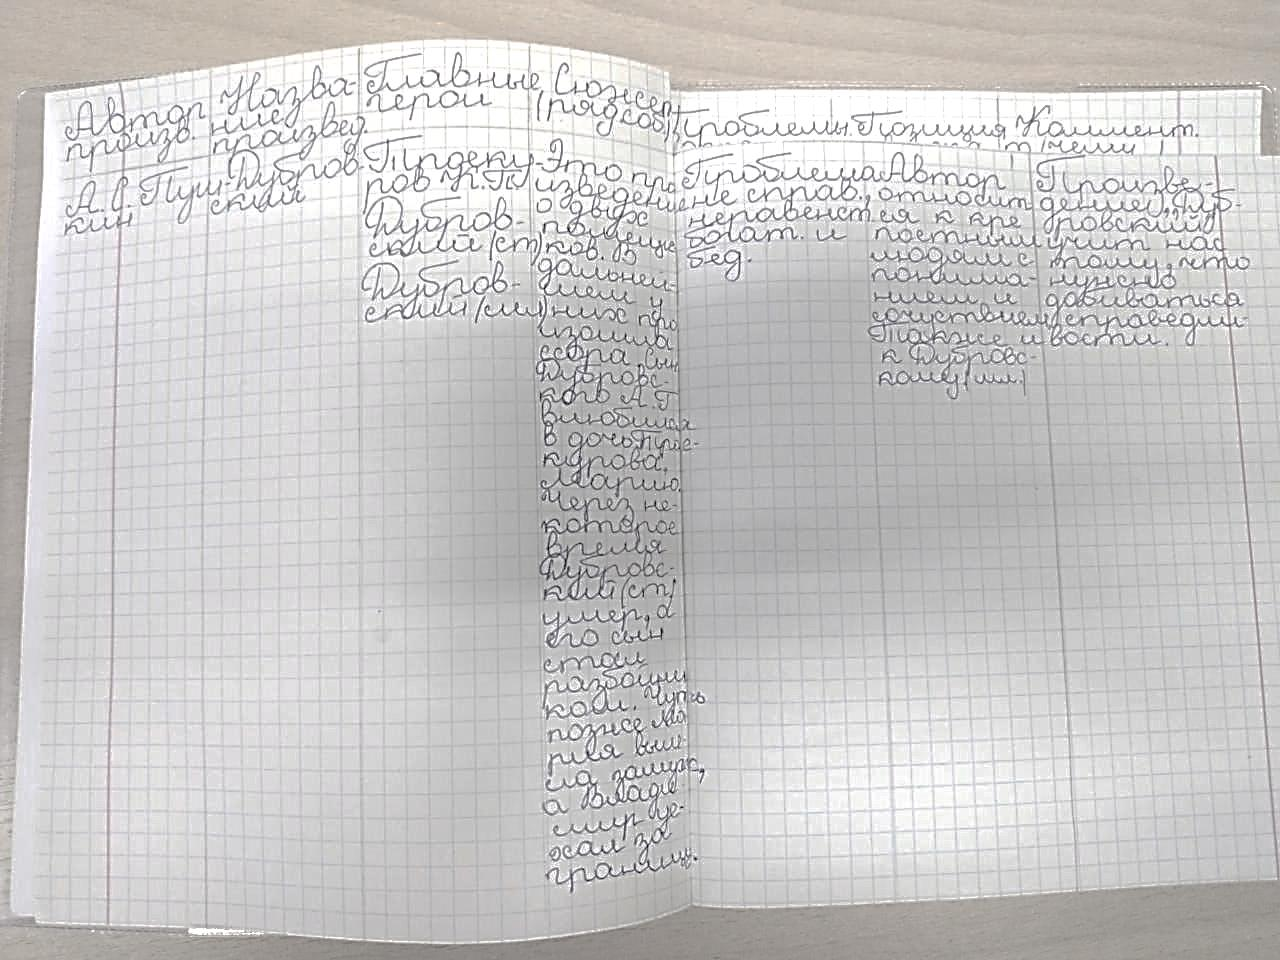 Автор произв.
Назва-
ние
произвед.
Главные
герои
Сюжет
(р-ад соб)
Проблемы.
Позиция
Коммент.
А.С. Пуш-
кин
Дубров-
ский
Троеку-
ров К.П
Дубров-
ский (ст)
Дубров-
ский (мл)
Это про
изведение
о двух
помещи
ков. В
дальней-
шем у
них про
изошла
ссора, сын
Дубровс-
кого А.Г
влюбился
в дочь Трое-
курова,
Марию.
Через не-
которое
время
Дубровс-
кий (ст)
умер, а
его сын
стал
разбойни
ком. Чуть
позже Ма
рия выш-
ла замуж,
а Влади
мир уе-
хал за
границу.
Проблема
не справ.,
неравенст
богат. и
бед.
Автор
относит
ся к кре
постным
людям с
понима-
нием и
сочуствием
Также и
к Дубровс-
кому (мл.)
Произве-
дение „Дуб-
ровский"
учит нас
тому, что
нужно
добиваться
справедли-
вости.